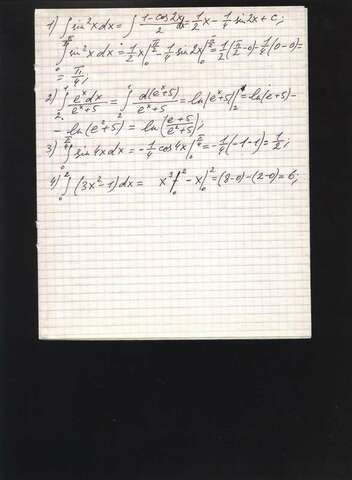 1) ∫ sin²x dx = ∫ (1-cos2x)/2 dx = 1/2 x - 1/4 sin2x + c;
∫₀^(π/2) sin²x dx = 1/2 x |₀^(π/2) - 1/4 sin2x |₀^(π/2) = 1/2 (π/2 - 0) - 1/4 (0-0) =
= π/4;
2) ∫₂¹ eˣdx/(eˣ+5) = ∫₂¹ d(eˣ+5)/(eˣ+5) = ln|eˣ+5| |₂¹ = ln(e+5) -
- ln(e²+5) = ln((e+5)/(e²+5));
3) ∫₀^(π/4) sin4x dx = -1/4 cos4x |₀^(π/4) = -1/4 (-1-1) = 1/2;
4) ∫₀² (3x²-1)dx = x³ |₀² - x |₀² = (8-0)-(2-0) = 6;